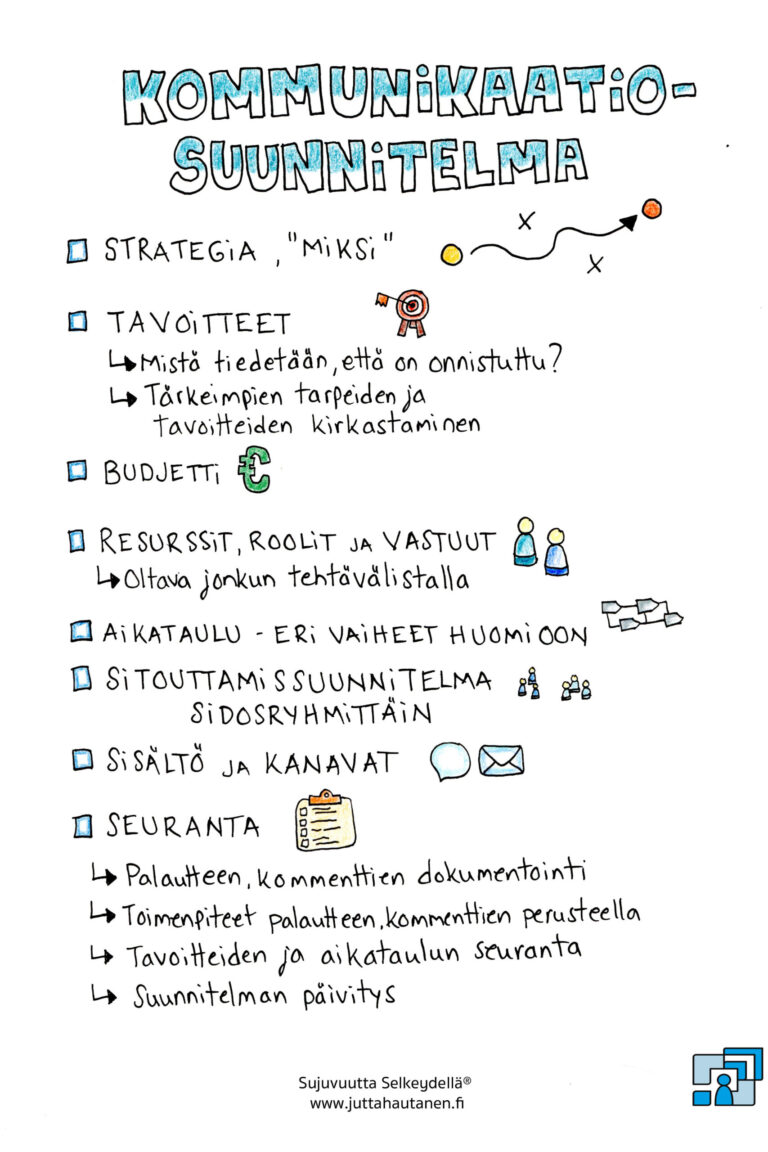 KOMMUNiKAATiO-
SUUNNiTELMA
STRATEGiA, "MiKSi"
X
X
TAVOiTTEET
Mistä tiedetään, että on onnistuttu?
Tärkeimpien tarpeiden ja
tavoitteiden kirkastaminen
BUDJETTi €
RESURSSiT, ROOLiT JA VASTUUT
Oltava jonkun tehtävälistalla
AiKATAULU - ERi VAiHEET HUOMiOON
SiTOUTTAMiSSUUNNiTELMA
SiDOSRYHMiTTÄiN
SiSÄLTÖ JA KANAVAT
SEURANTA
Palautteen, kommenttien dokumentointi
Toimenpiteet palautteen, kommenttien perusteella
Tavoitteiden ja aikataulun seuranta
Suunnitelman päivitys
Sujuvuutta Selkeydellä®
www.juttahautanen.fi